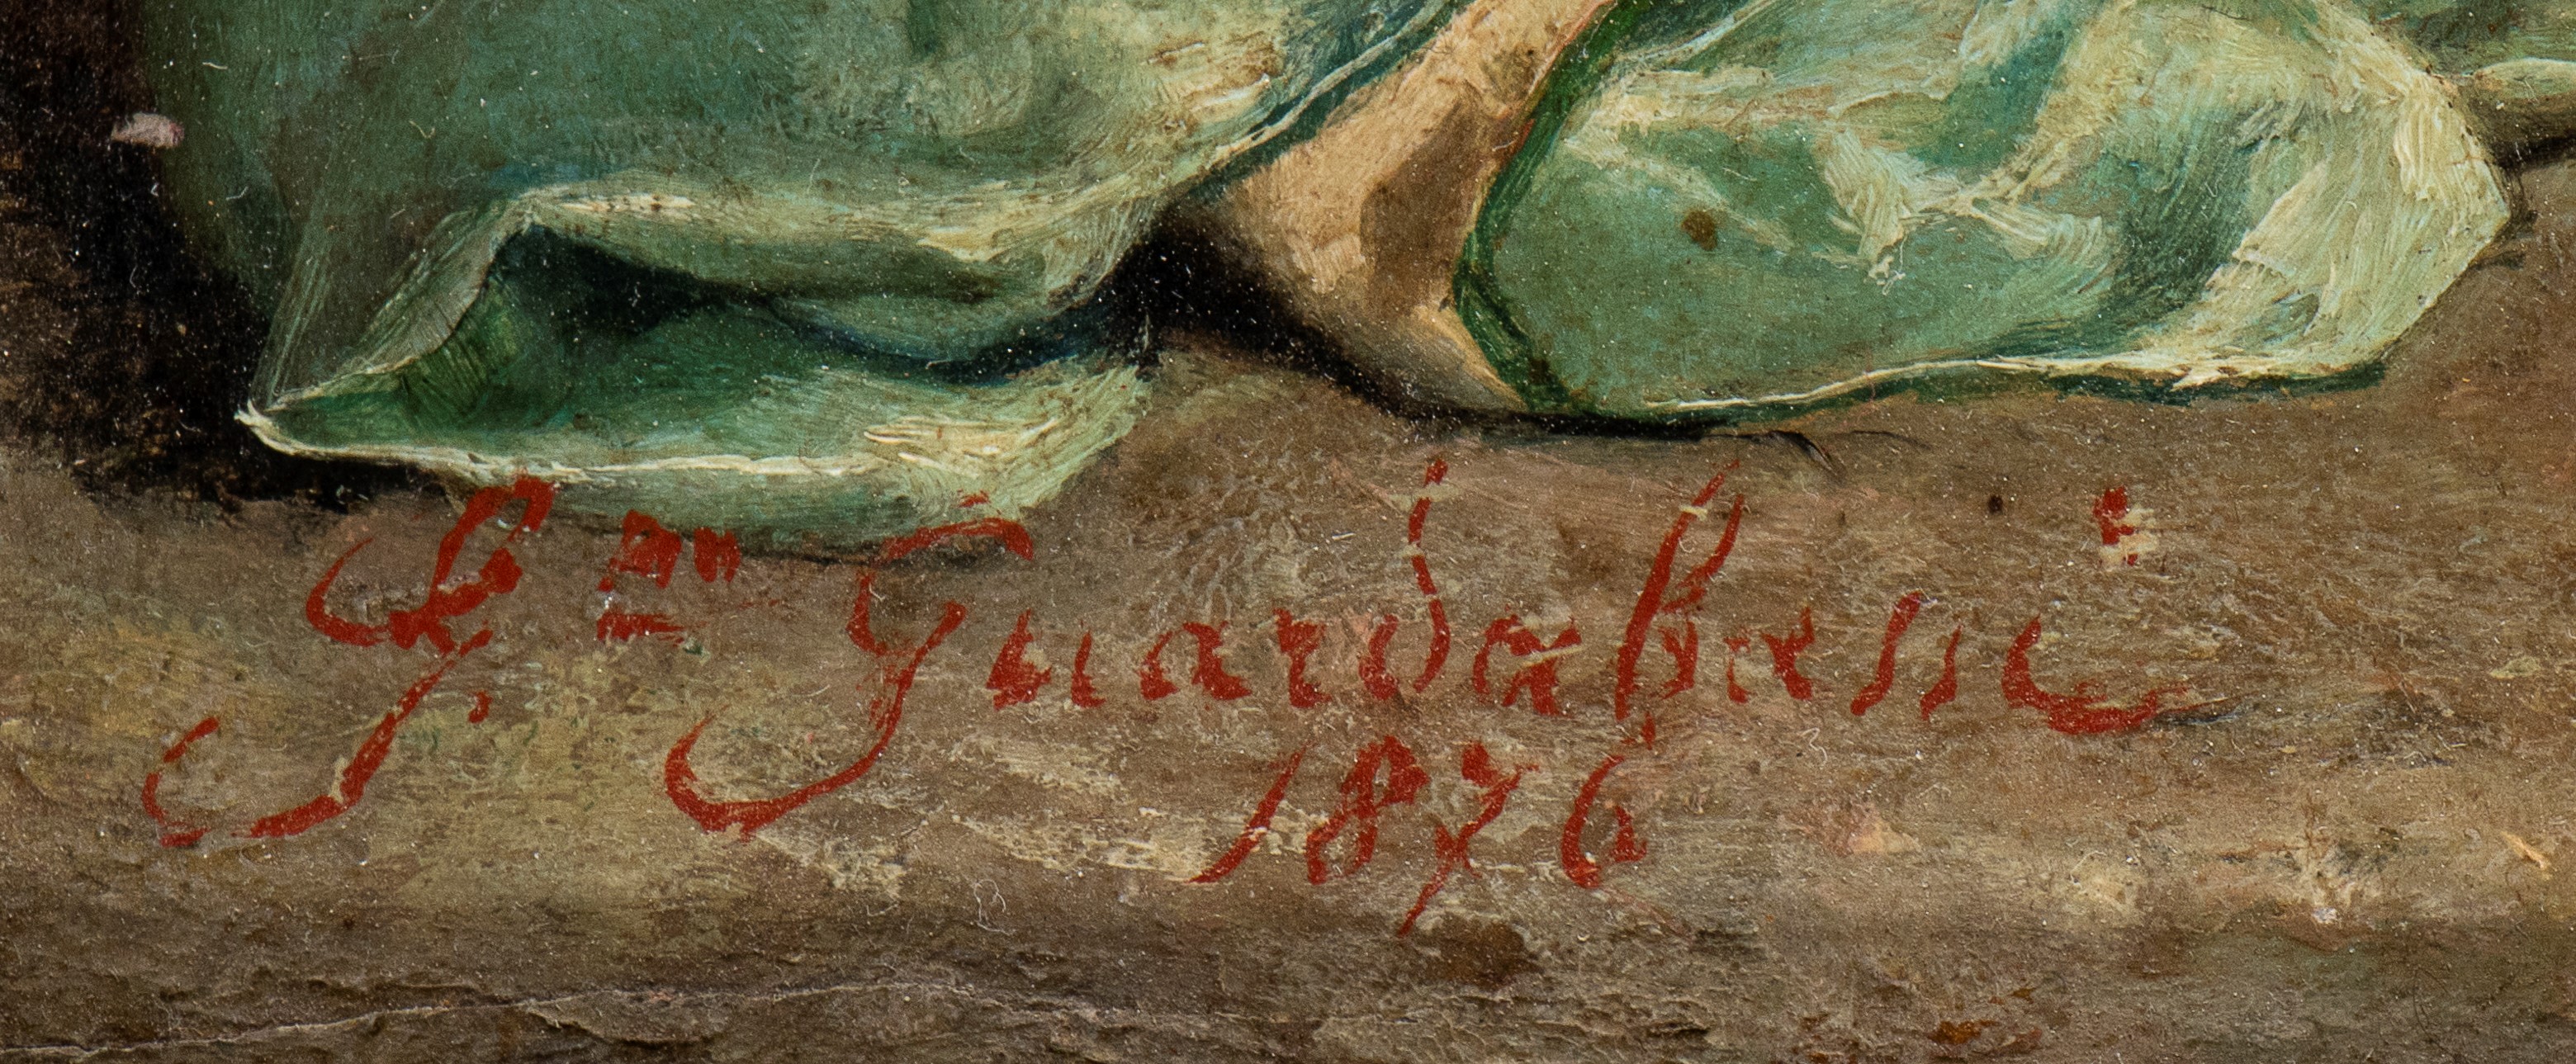 Gmo Guardabassi
1876